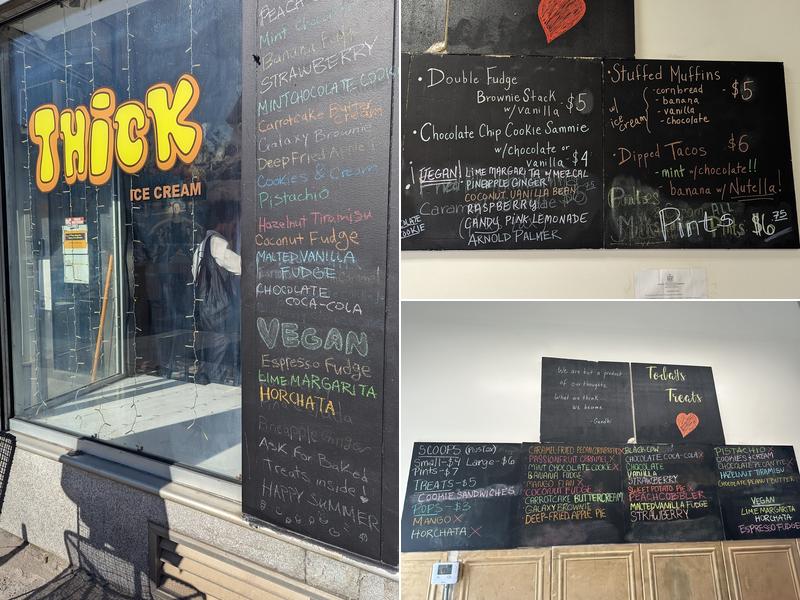 THiCK
ICE CREAM
PEACH
Mint Chocolate
Banana Fudge
STRAWBERRY
MINTCHOCOLATE COOK
Carrotcake Butter
Cream
Galaxy Brownie
Deep Fried Apple
Cookies & Cream
Pistachio
Hazelnut Tiramisu
Coconut Fudge
MALTED VANILLA
FUDGE
CHOCOLATE
COCA-COLA
VEGAN
Espresso Fudge
LIME MARGARITA
HORCHATA
Pineapple Ginger
Ask for Baked
Treats inside!
HAPPY SUMMER
• Double Fudge
Brownie Stack
w/vanilla - $5
• Chocolate Chip Cookie Sammie
w/chocolate or
vanilla $4
! VEGAN! LIME MARGARITA W/MEZCAL
PINEAPPLE GINGER!
COCONUT VANILLA BEAN
RASPBERRY
CANDY PINK LEMONADE
ARNOLD PALMER
OOKIE
• Stuffed Muffins
w/ ice cream
- cornbread
- banana
- vanilla
- chocolate
- $5
• Dipped Tacos $6
- mint w/chocolate!!
- banana w/Nutella!
Pints $6.75
We are but a product
of our thoughts.
What we think...
we become.
- Gandhi
Today's
Treats
SCOOPS
Small-$4 Large-$6
Pints-$7
TREATS-$5
COOKIE SANDWICHES
POPS-$3
MANGO X
HORCHATA X
PASSIONFRUIT CARAMEL X
MINT CHOCOLATE COOKIE X
BANANA FUDGE
COCONUT FUDGE
CARROTCAKE BUTTERCREAM
GALAXY BROWNIE
DEEP-FRIED APPLE PIE
BLACK COW
CHOCOLATE COCA-COLA X
CHOCOLATE
VANILLA
STRAWBERRY
SWEET POTATO PIE X
PEACH COBBLER
MALTED VANILLA FUDGE
STRAWBERRY
PISTACHIO X
COOKIES & CREAM
HAZELNUT TIRAMISU
CHOCOLATE PEANUT BUTTER
VEGAN
LIME MARGARITA
HORCHATA
ESPRESSO FUDGE